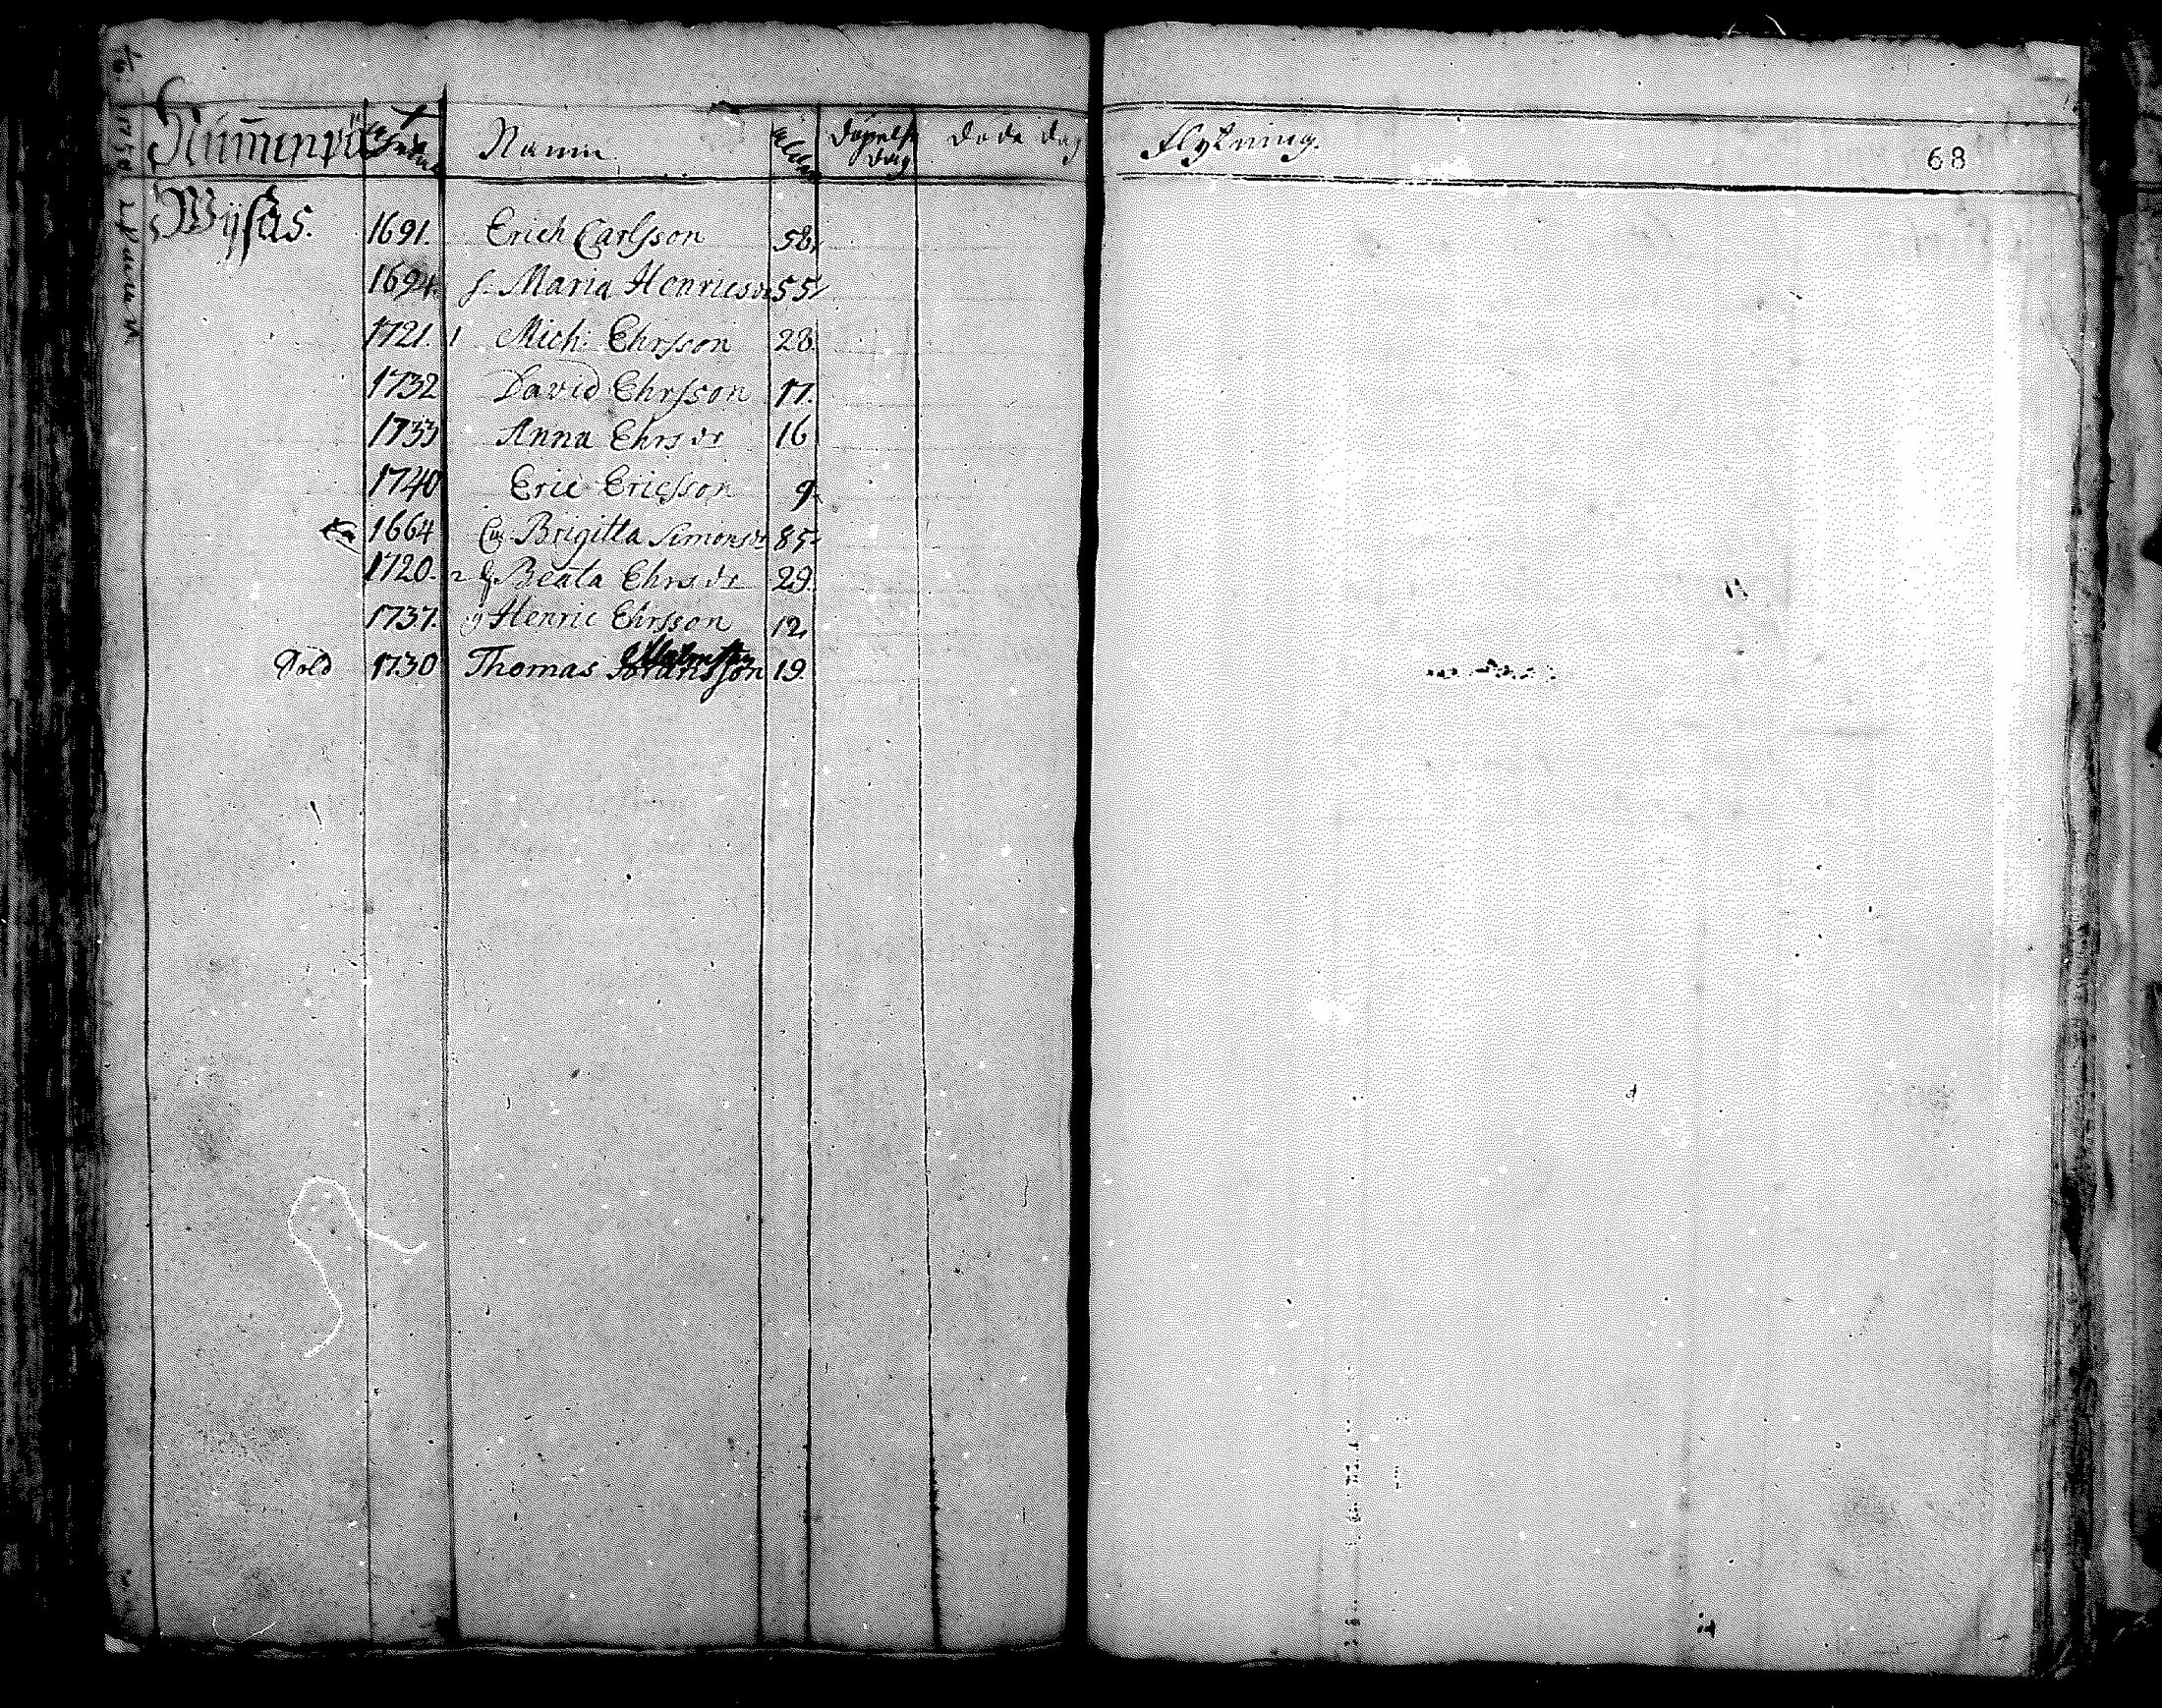 Namn döpelse dag Döde dag Flytning. 68
Wijsås.
1691. Erich Carlsson 58.
1694. h. Maria Henricsdr 55
1721. 1 Mich: Ehrsson 28.
1732 David Ehrsson 17.
1733 Anna Ehrsdr 16
1740 Eric Ericsson 9
1664 Brigitta Simonsdr 85
1720. 2 Beata Ehrsdr 29.
1737. Henric Ehrsson 12.
1730 Thomas 19.